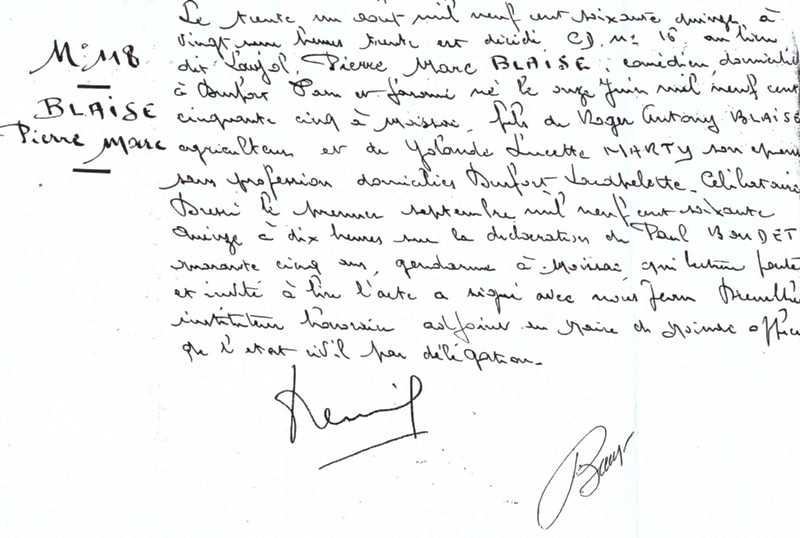 N° 118
BLAISE
Pierre Marc
Le trente un août mil neuf cent soixante quinze, à
vingt une heures trente est décédé CD n° 16, au lieu
dit Laujol, Pierre Marc BLAISE, comédien, domicilié
à Durfort né le onze Juin mil neuf cent
cinquante cinq à Moissac, fils de Roger Antony BLAISE
agriculteur et de Yolande Lucette MARTY son épouse
sans profession domiciliés Durfort Lacapelette. Célibataire
Dressé le premier septembre mil neuf cent soixante
quinze à dix heures sur la déclaration de Paul BOUDET
quarante cinq ans, gendarme à Moissac, qui lecture faite
et invité à lire l'acte a signé avec nous Jean
instituteur honoraire adjoint au Maire de Moissac officier
de l'état civil par délégation.